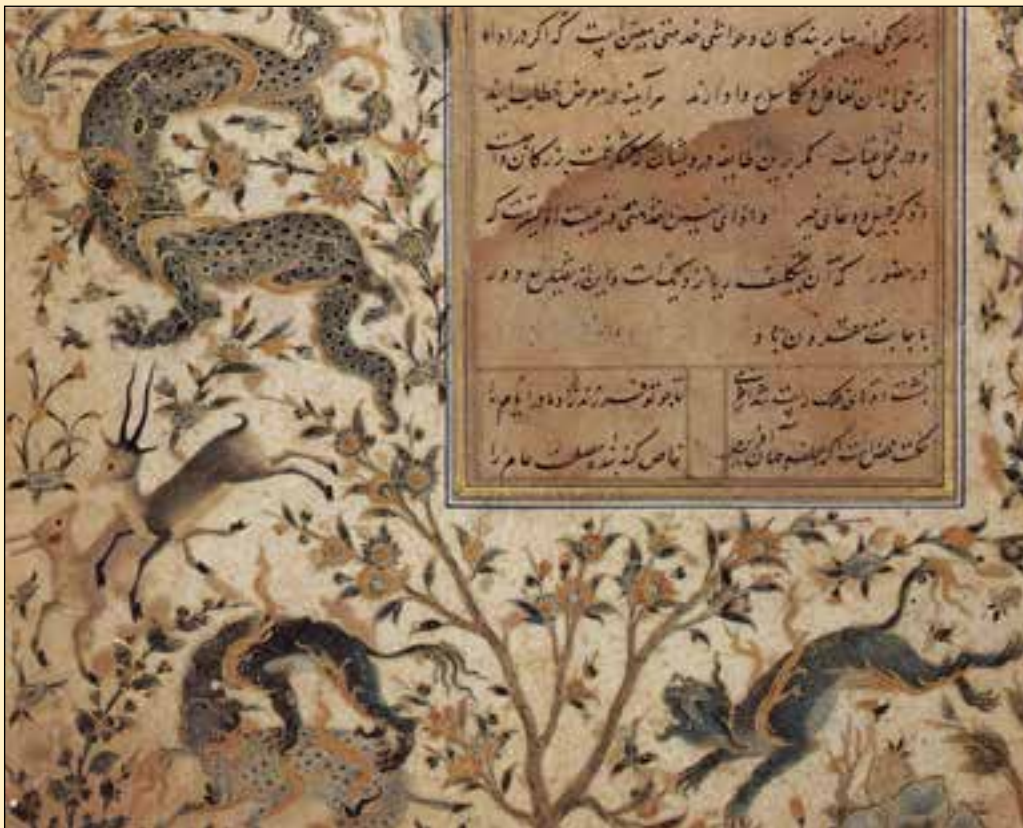 بر هر یکی از سایر بندگان و حواشی خدمتی معین است که اگر در اداء
برخی از آن تغافل و تکاسل روا دارند هرآینه در معرض خطاب آیند
و در محل عتاب مگر برین طایفه درویشان که شکر نعمت بزرگان واجبست
و ذکر جمیل و دعای خیر و ادای چنین خدمتی در غیبت اولیترست که
در حضور که آن بتکلف نزدیکست و این از تصنع دور
باجابت مقرون باد
پشت دوتای فلک راست شد از خرمی تا چو تو فرزند زاد مادر ایام را
حکمت محض است اگر لطف جهان آفرین خاص کند بنده مصلحت عام را